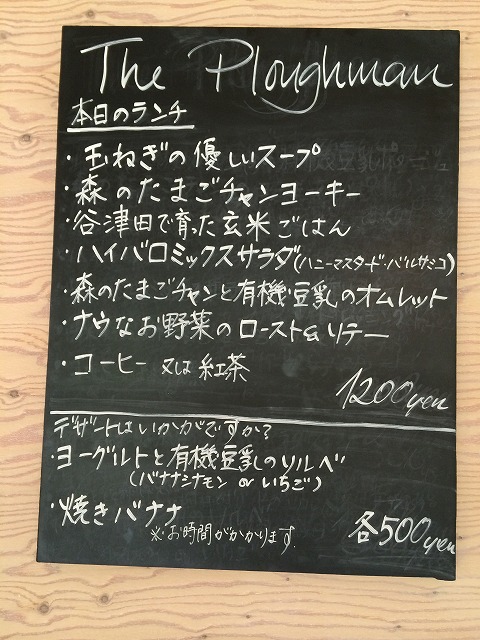 The Ploughman
本日のランチ
・玉ねぎの優しいスープ
・森のたまごチャンヨーキー
・谷津田で育った玄米ごはん
・ハイバロミックスサラダ(ハニーマスタード・バルサミコ)
・森のたまごチャンと有機豆乳のオムレット
・ナウなお野菜のロースト&ソテー
・コーヒー 又は 紅茶
1200yen
デザートはいかがですか?
・ヨーグルトと有機豆乳のソルベ
(バナナシナモン or いちご)
・焼きバナナ
※お時間がかかります.
各500yen